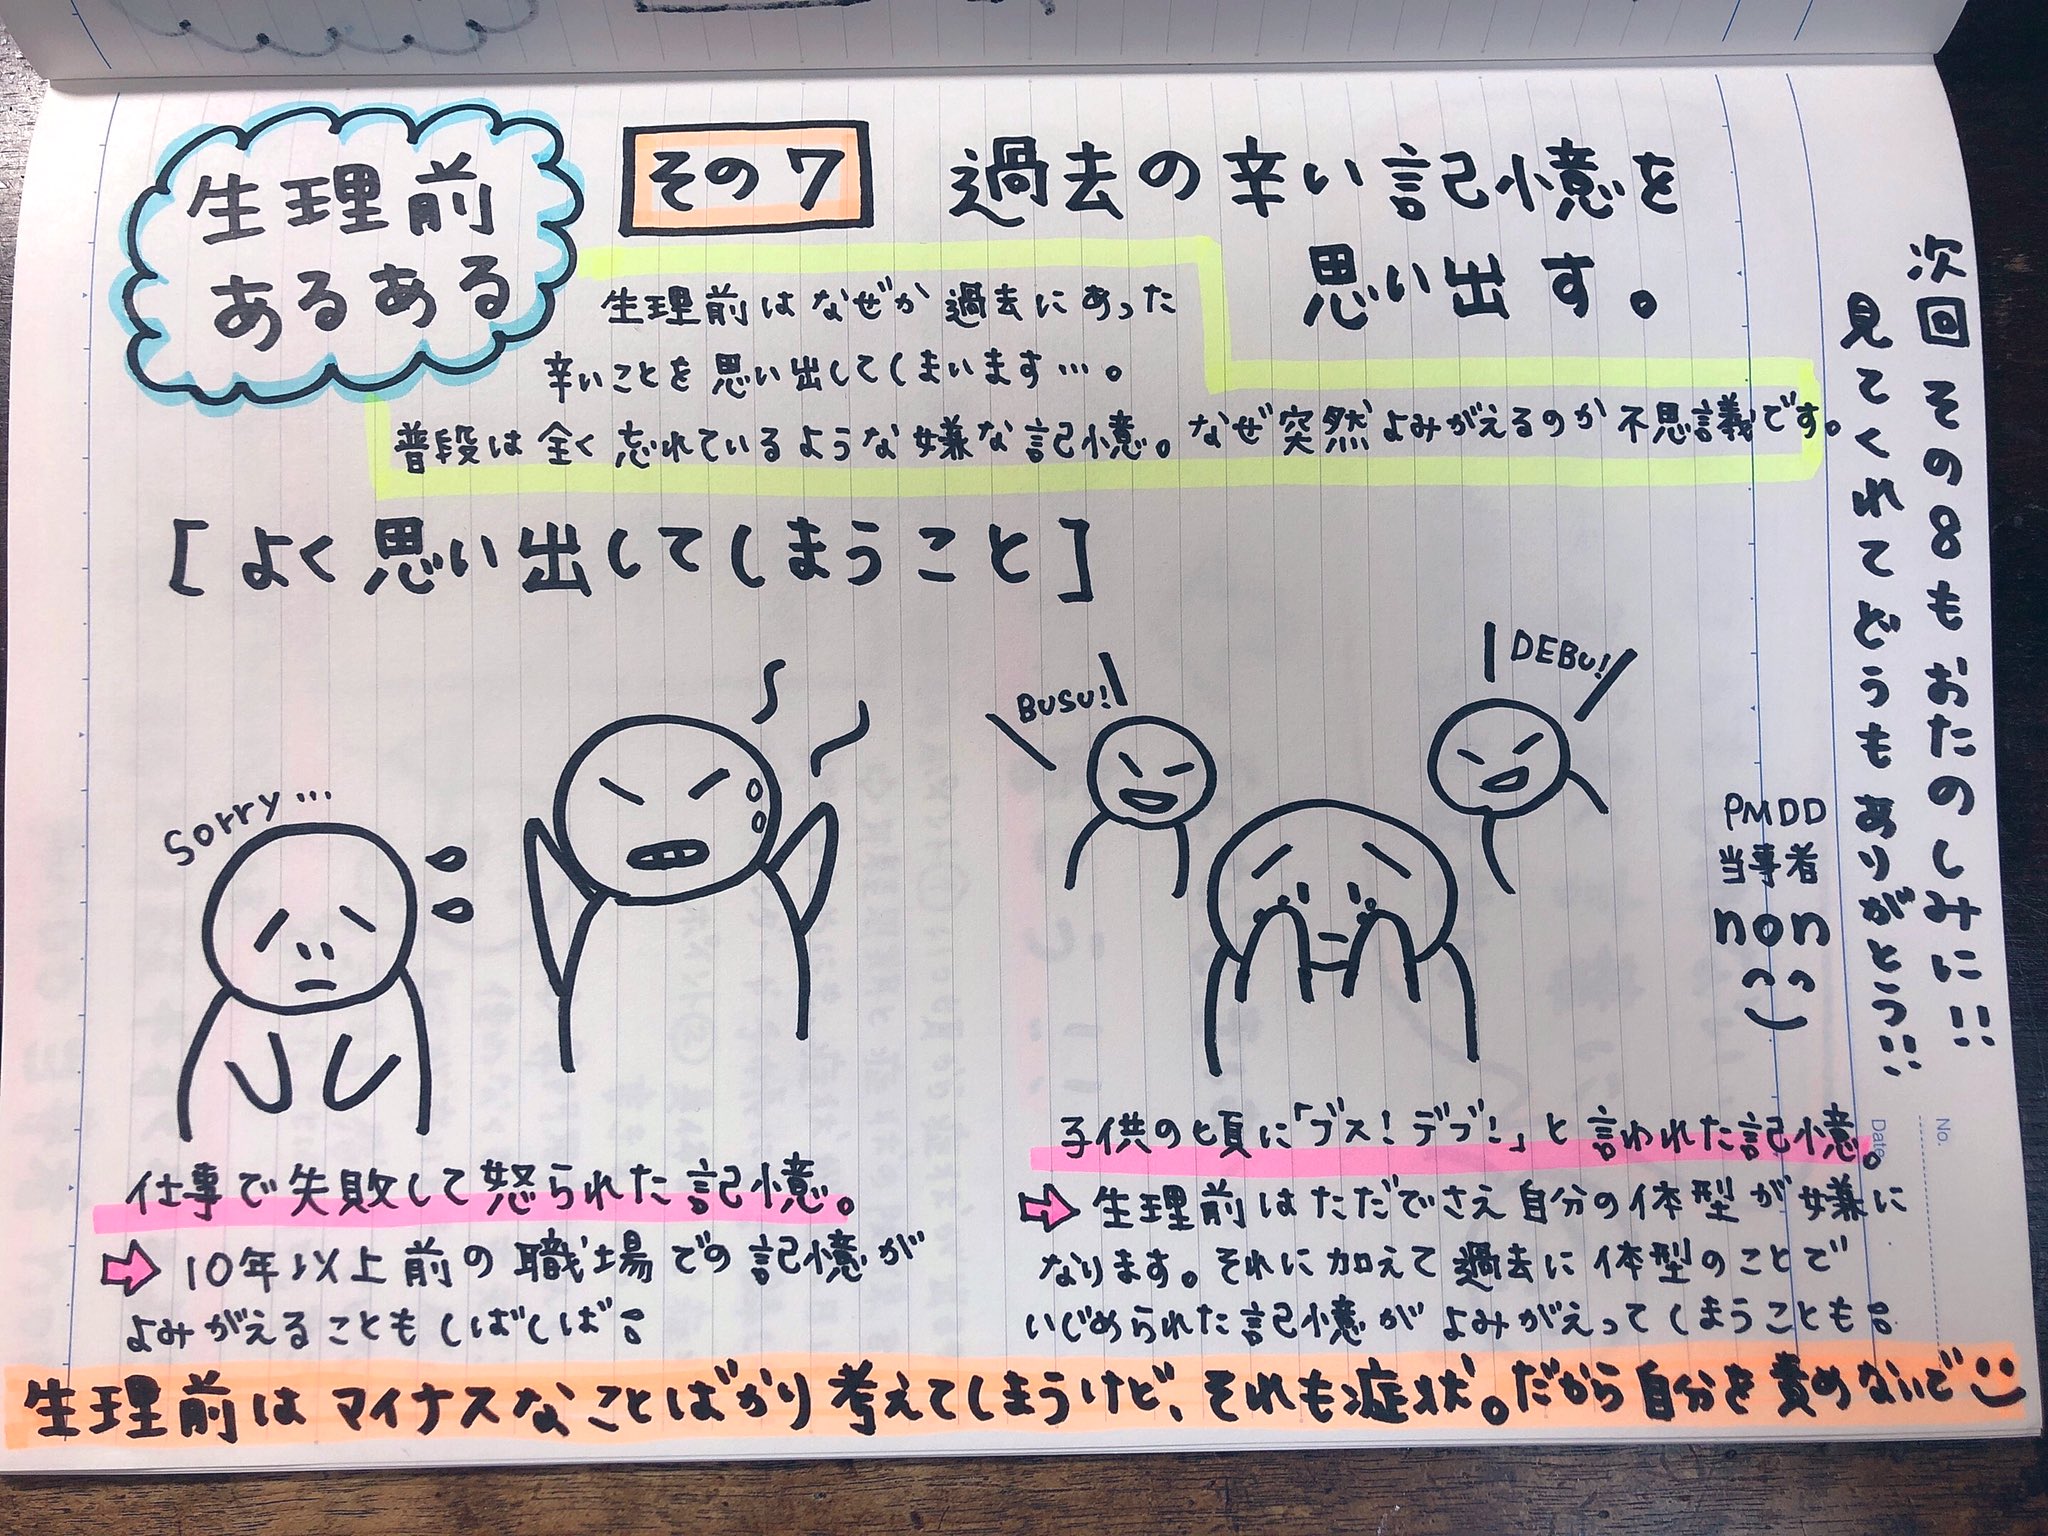 生理前
あるある
その7
過去の辛い記憶を
思い出す。
生理前はなぜか過去にあった
辛いことを思い出してしまいます…。
普段は全く忘れているような嫌な記憶。なぜ突然よみがえるのか不思議です。
[よく思い出してしまうこと]
sorry…
BUSU!
DEBU!
仕事で失敗して怒られた記憶。
⇨10年以上前の職場での記憶が
よみがえることもしばしば
子供の頃に「ブス!デブ!」と言われた記憶。
⇨生理前はただでさえ自分の体型が嫌に
なります。それに加えて過去に体型のことで
いじめられた記憶がよみがえってしまうことも
PMDD
当事者
non
次回その8もおたのしみに!!
見てくれてどうもありがとう!!
No.
Date
生理前はマイナスなことばかり考えてしまうけど、それも症状。だから自分を責めないで